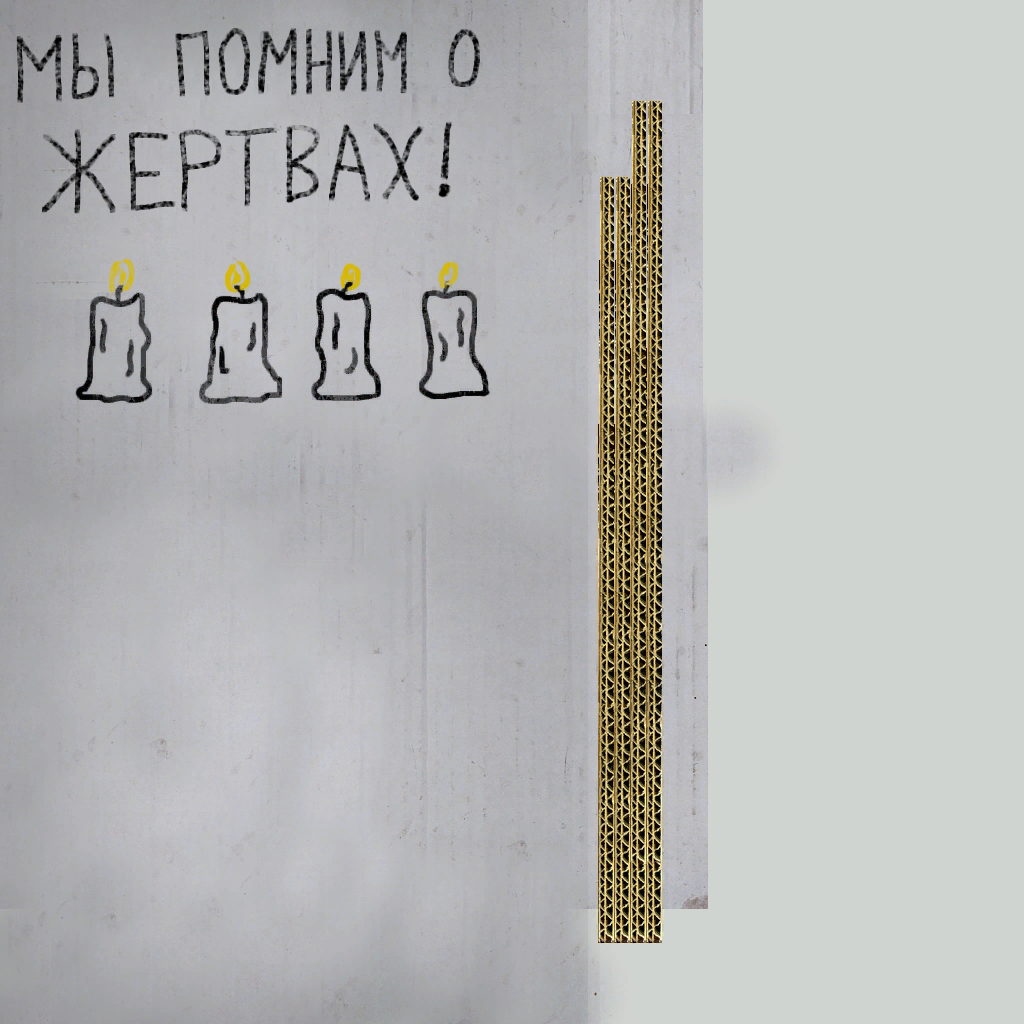 МЫ ПОМНИМ О
ЖЕРТВАХ!